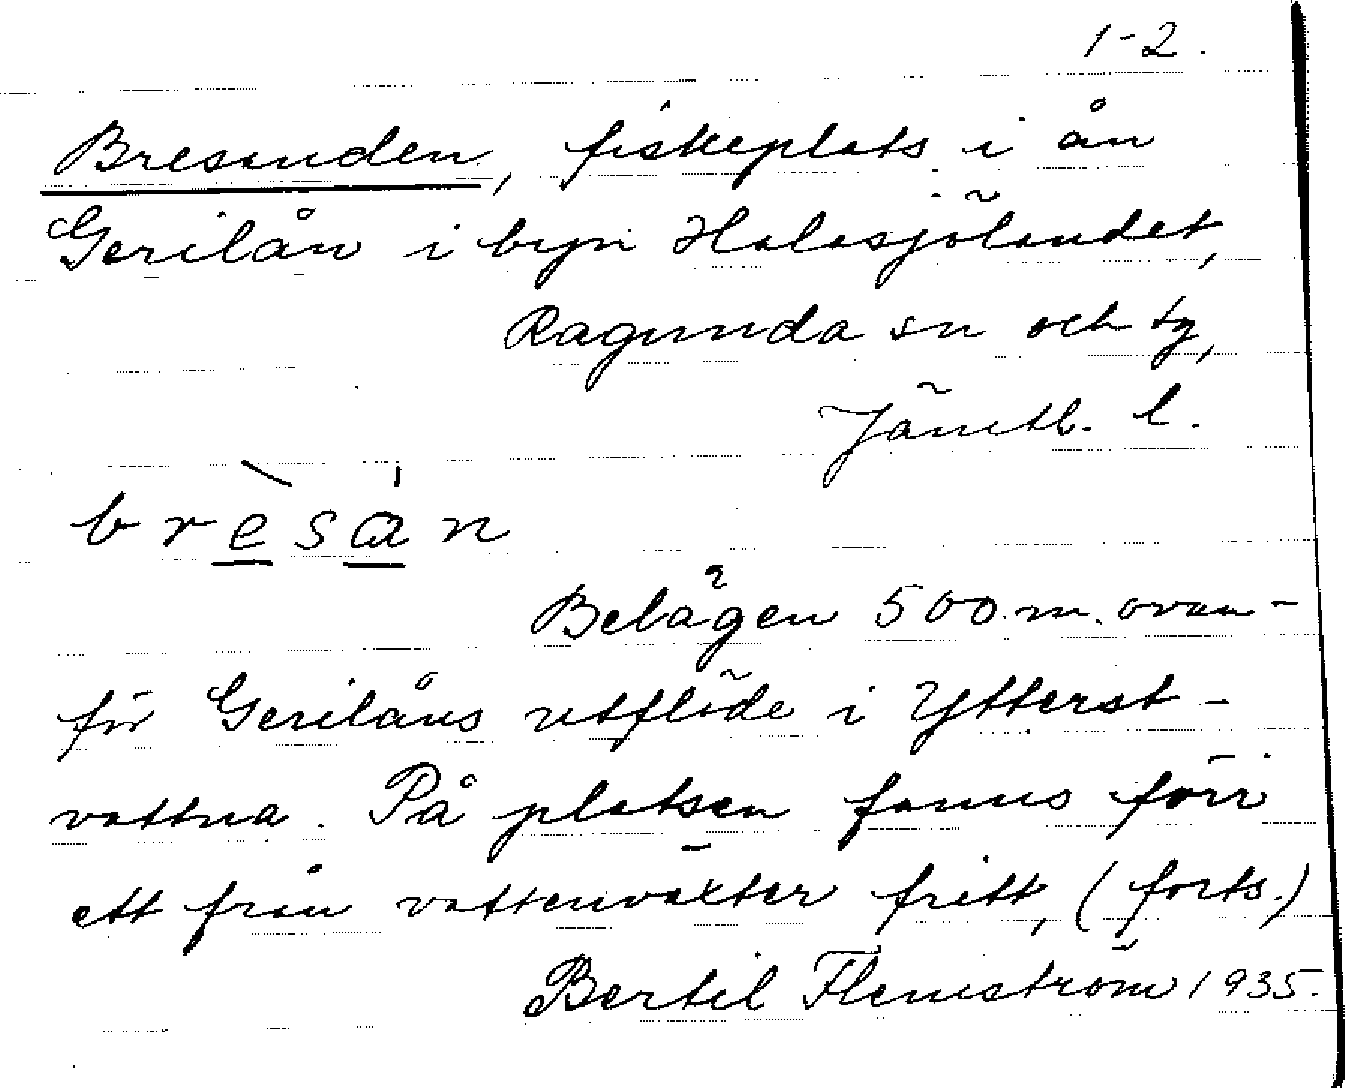 1-2.
Bresanden, fiskeplats i ån
Gerilån i byn Halasjölandet,
Ragunda sn och tg,
Jämtl. l.
b r è s á n
Belägen 500 m. ovan-
för Gerilåns utflöde i Ytterst-
vattna. På platsen fanns förr
ett från vattenväxter fritt, (forts.)
Bertil Flemström 1935.